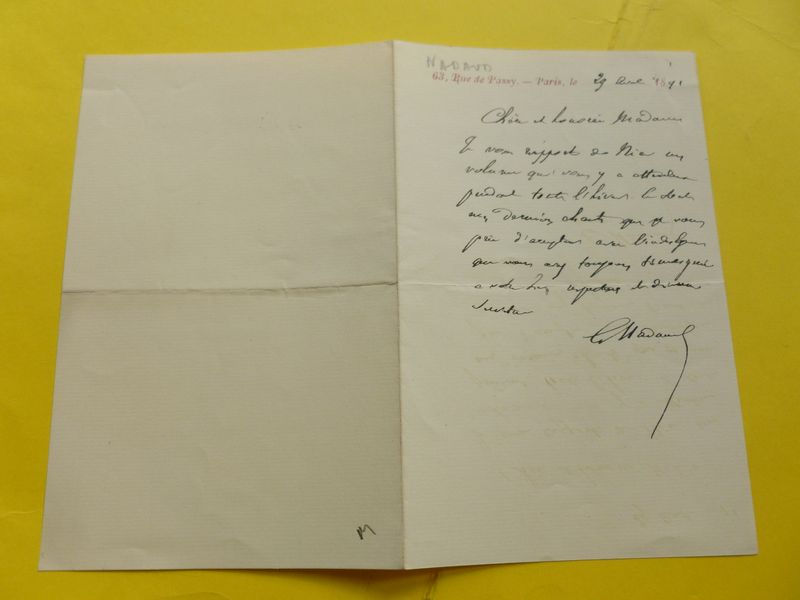 NADAUD
63, Rue de Passy. — Paris, le 29 avril 1891
Chère et honorée Madame
Je vous rapporte de Nice un
volume qui vous y a attendue
pendant toute l'hiver. Ce sont
mes derniers chants que je vous
prie d'accepter avec l'indulgence
que vous avez toujours témoignée
a votre très respectueux et dévoué
serviteur
G Nadaud